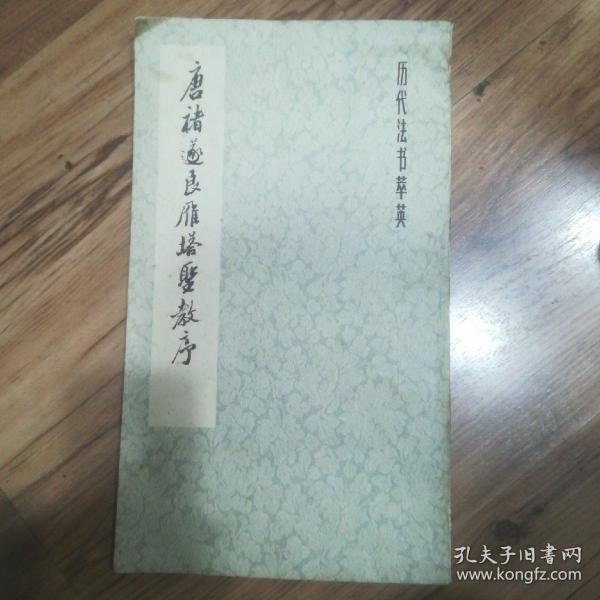 历代法书萃英
唐褚遂良雁塔聖教序
孔夫子旧书网
www.kongfz.com